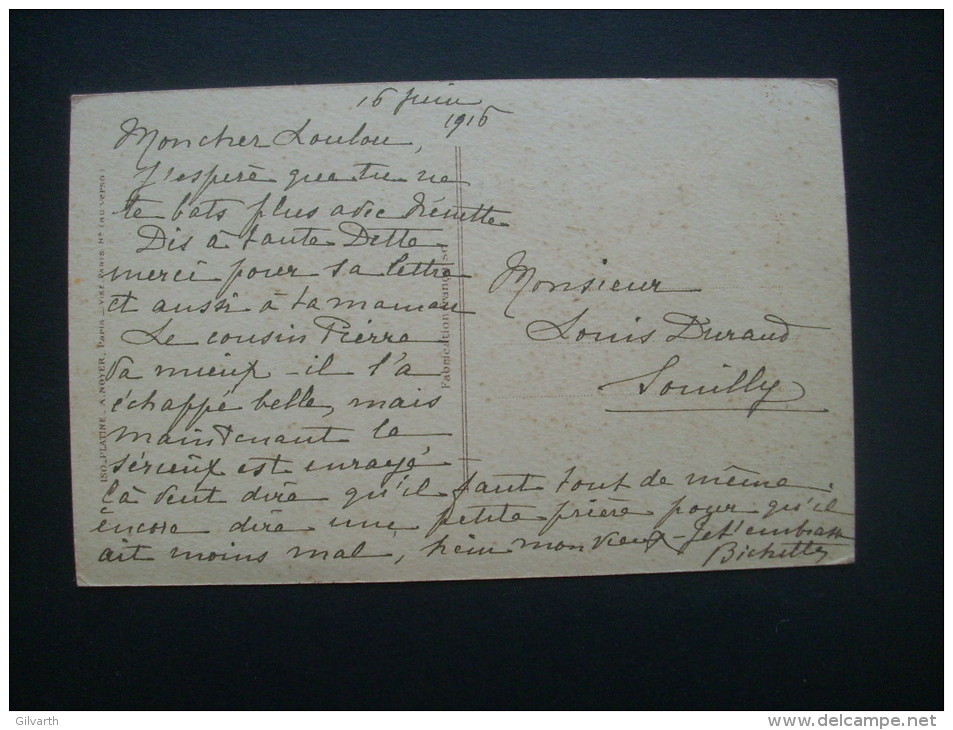 16 juin
1916
Mon cher Loulou,
J'espère que tu ne
te bats plus avec Nénette
Dis à tante Dette
merci pour sa lettre
et aussi à ta maman
Le cousin Pierre
va mieux - il l'a
échappé belle, mais
maintenant le
sérieux est enrayé
Çà veut dire qu'il faut tout de même
encore dire une petite prière pour qu'il
ait moins mal, hein mon vieux - Je t'embrasse
Bichette
Monsieur
Louis Durand
Souilly
ISO-PLATINE. A. NOYER, Paris - Visé Paris Nº (au verso)
Fabrication Française
Gilvarth
www.delcampe.net